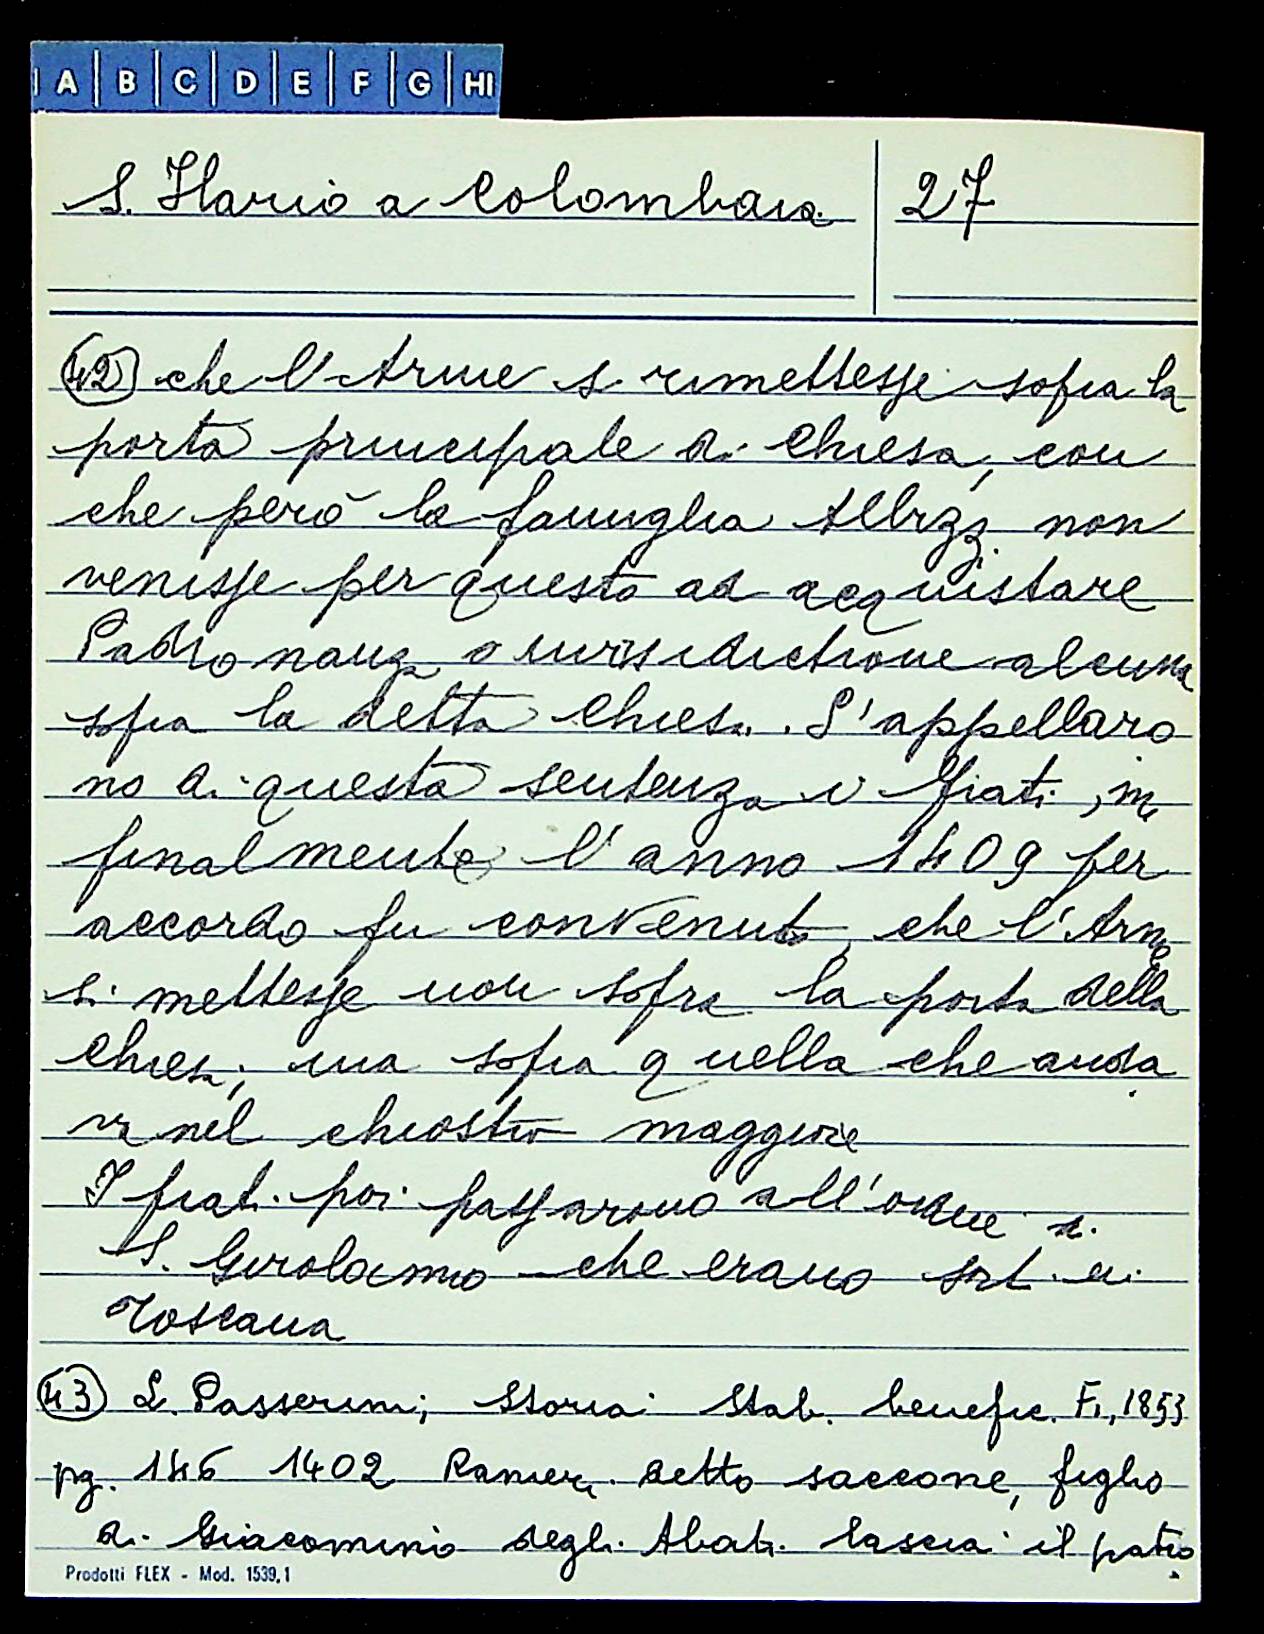 A B C D E F G HI
S. Ilario a Colombaia
27
(42) che l'Arme si rimettesse sopra la
porta principale di Chiesa, con
che però la famiglia Albizzi non
venisse per questo ad acquistare
Padronanza o iurisdictione alcuna
sopra la detta Chiesa. S'appellaro
no di questa sentenza i frati, ma
finalmente l'anno 1409 per
accordo fu convenuto che l'Arme
si mettesse non sopra la porta della
Chiesa; ma sopra quella che anda
va nel chiostro maggiore
I frati poi passarono all'ordine di
S. Girolamo che erano sorti in
Toscana
(43) L. Passerini; Storia Stab. benefic. Fi, 1853
pg. 146 1402 Ranieri detto saccone, figlio
di Giacomino degli Abati lascia il patrio
Prodotti FLEX - Mod. 1539,1